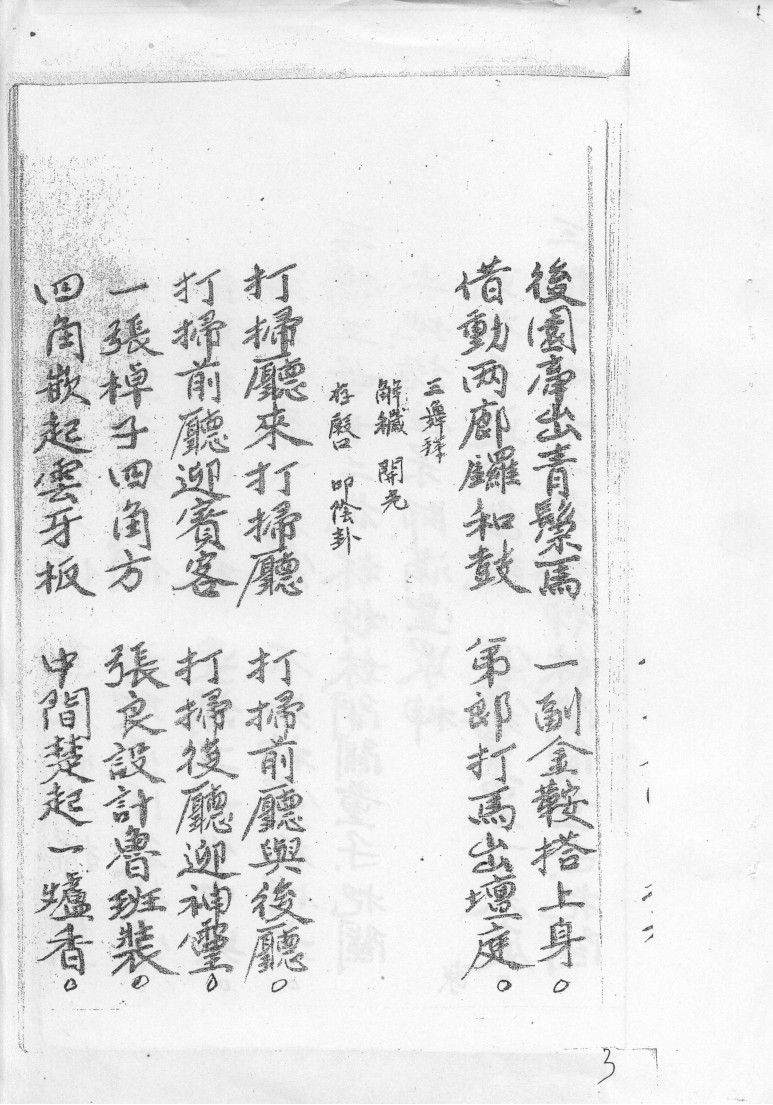 後園牽出青鬃馬 一副金鞍搭上身。
借動兩廊鑼和鼓 弟郎打馬出壇庭。
三舞
解穢 開光
存殿 叩陰卦
打掃廳來打掃廳 打掃前廳與後廳。
打掃前廳迎賓客 打掃後廳迎神靈。
一張棹子四角方 張良設計魯班裝。
四角嵌起雲牙板 中間楚起一爐香。
3